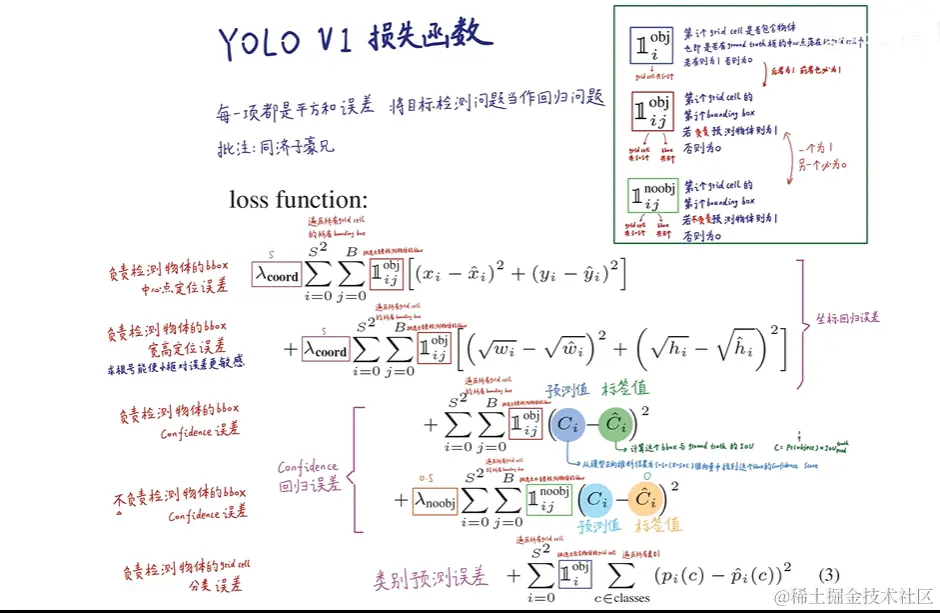 YOLO V1 损失函数
每一项都是平方和误差 将目标检测问题当作回归问题
批注:同济子豪兄
𝟙 obj i
grid cell 共S*S个
第i个grid cell是否包含物体
也即是否有ground truth 框的中心点落在此grid cell中
若有则为1 否则为0
后者为1 前者也必为1
𝟙 obj ij
grid cell 共S*S个
bbox 共B个
第i个grid cell的
第j个bounding box
若负责预测物体则为1
否则为0
一个为1
另一个必为0
𝟙 noobj ij
grid cell 共S*S个
bbox 共B个
第i个grid cell的
第j个bounding box
若不负责预测物体则为1
否则为0
loss function:
遍历所有grid cell
的所有bounding box
负责检测物体的bbox
中心点定位误差
5
λcoord ∑ S² i=0 ∑ B j=0 𝟙 obj ij [(xᵢ − x̂ᵢ)² + (yᵢ − ŷᵢ)²]
遍历所有grid cell
的所有bounding box
负责检测物体的bbox
宽高定位误差
求根号能使小框对误差更敏感
5
+ λcoord ∑ S² i=0 ∑ B j=0 𝟙 obj ij [(√wᵢ − √ŵᵢ)² + (√hᵢ − √ĥᵢ)²]
坐标回归误差
遍历所有grid cell
的所有bounding box
预测值 标签值
负责检测物体的bbox
Confidence 误差
+ ∑ S² i=0 ∑ B j=0 𝟙 obj ij (Cᵢ − Ĉᵢ)²
计算这个bbox与ground truth 的IOU
C = Pr(object) * IOU truth pred
1
Confidence
回归误差
遍历所有grid cell
的所有bounding box
不负责检测物体的bbox
Confidence 误差
0.5
0
+ λnoobj ∑ S² i=0 ∑ B j=0 𝟙 noobj ij (Cᵢ − Ĉᵢ)²
预测值 标签值
遍历所有grid cell
遍历所有类别
负责检测物体的grid cell
分类误差
类别预测误差
+ ∑ S² i=0 𝟙 obj i ∑ c∈classes (pᵢ(c) − p̂ᵢ(c))² (3)
@稀土掘金技术社区